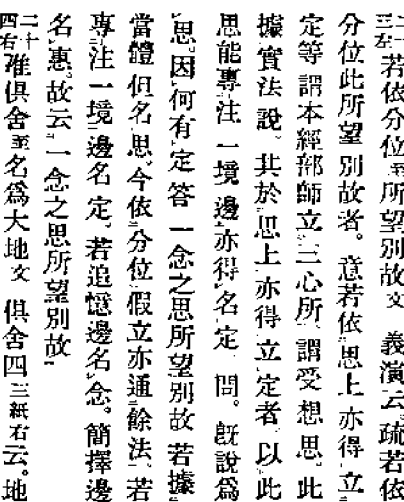 二十三左若依分位至所望別故文 義演云疏若依
分位此所望別故者。意若依思上亦得立
定等謂本經部師立三心所謂受想思。此
據實法說。其於思上亦得立定者以此
思能專注一境邊亦得名定 問。既說爲
思。因何有定答一念之思所望別故若據
當體但名思今依分位假立亦通餘法。若
專注一境邊名定。若追憶邊名念。簡擇邊
名惠。故云一念之思所望別故
二十四右雖俱舍至名爲大地文 俱舍四三紙右云。地